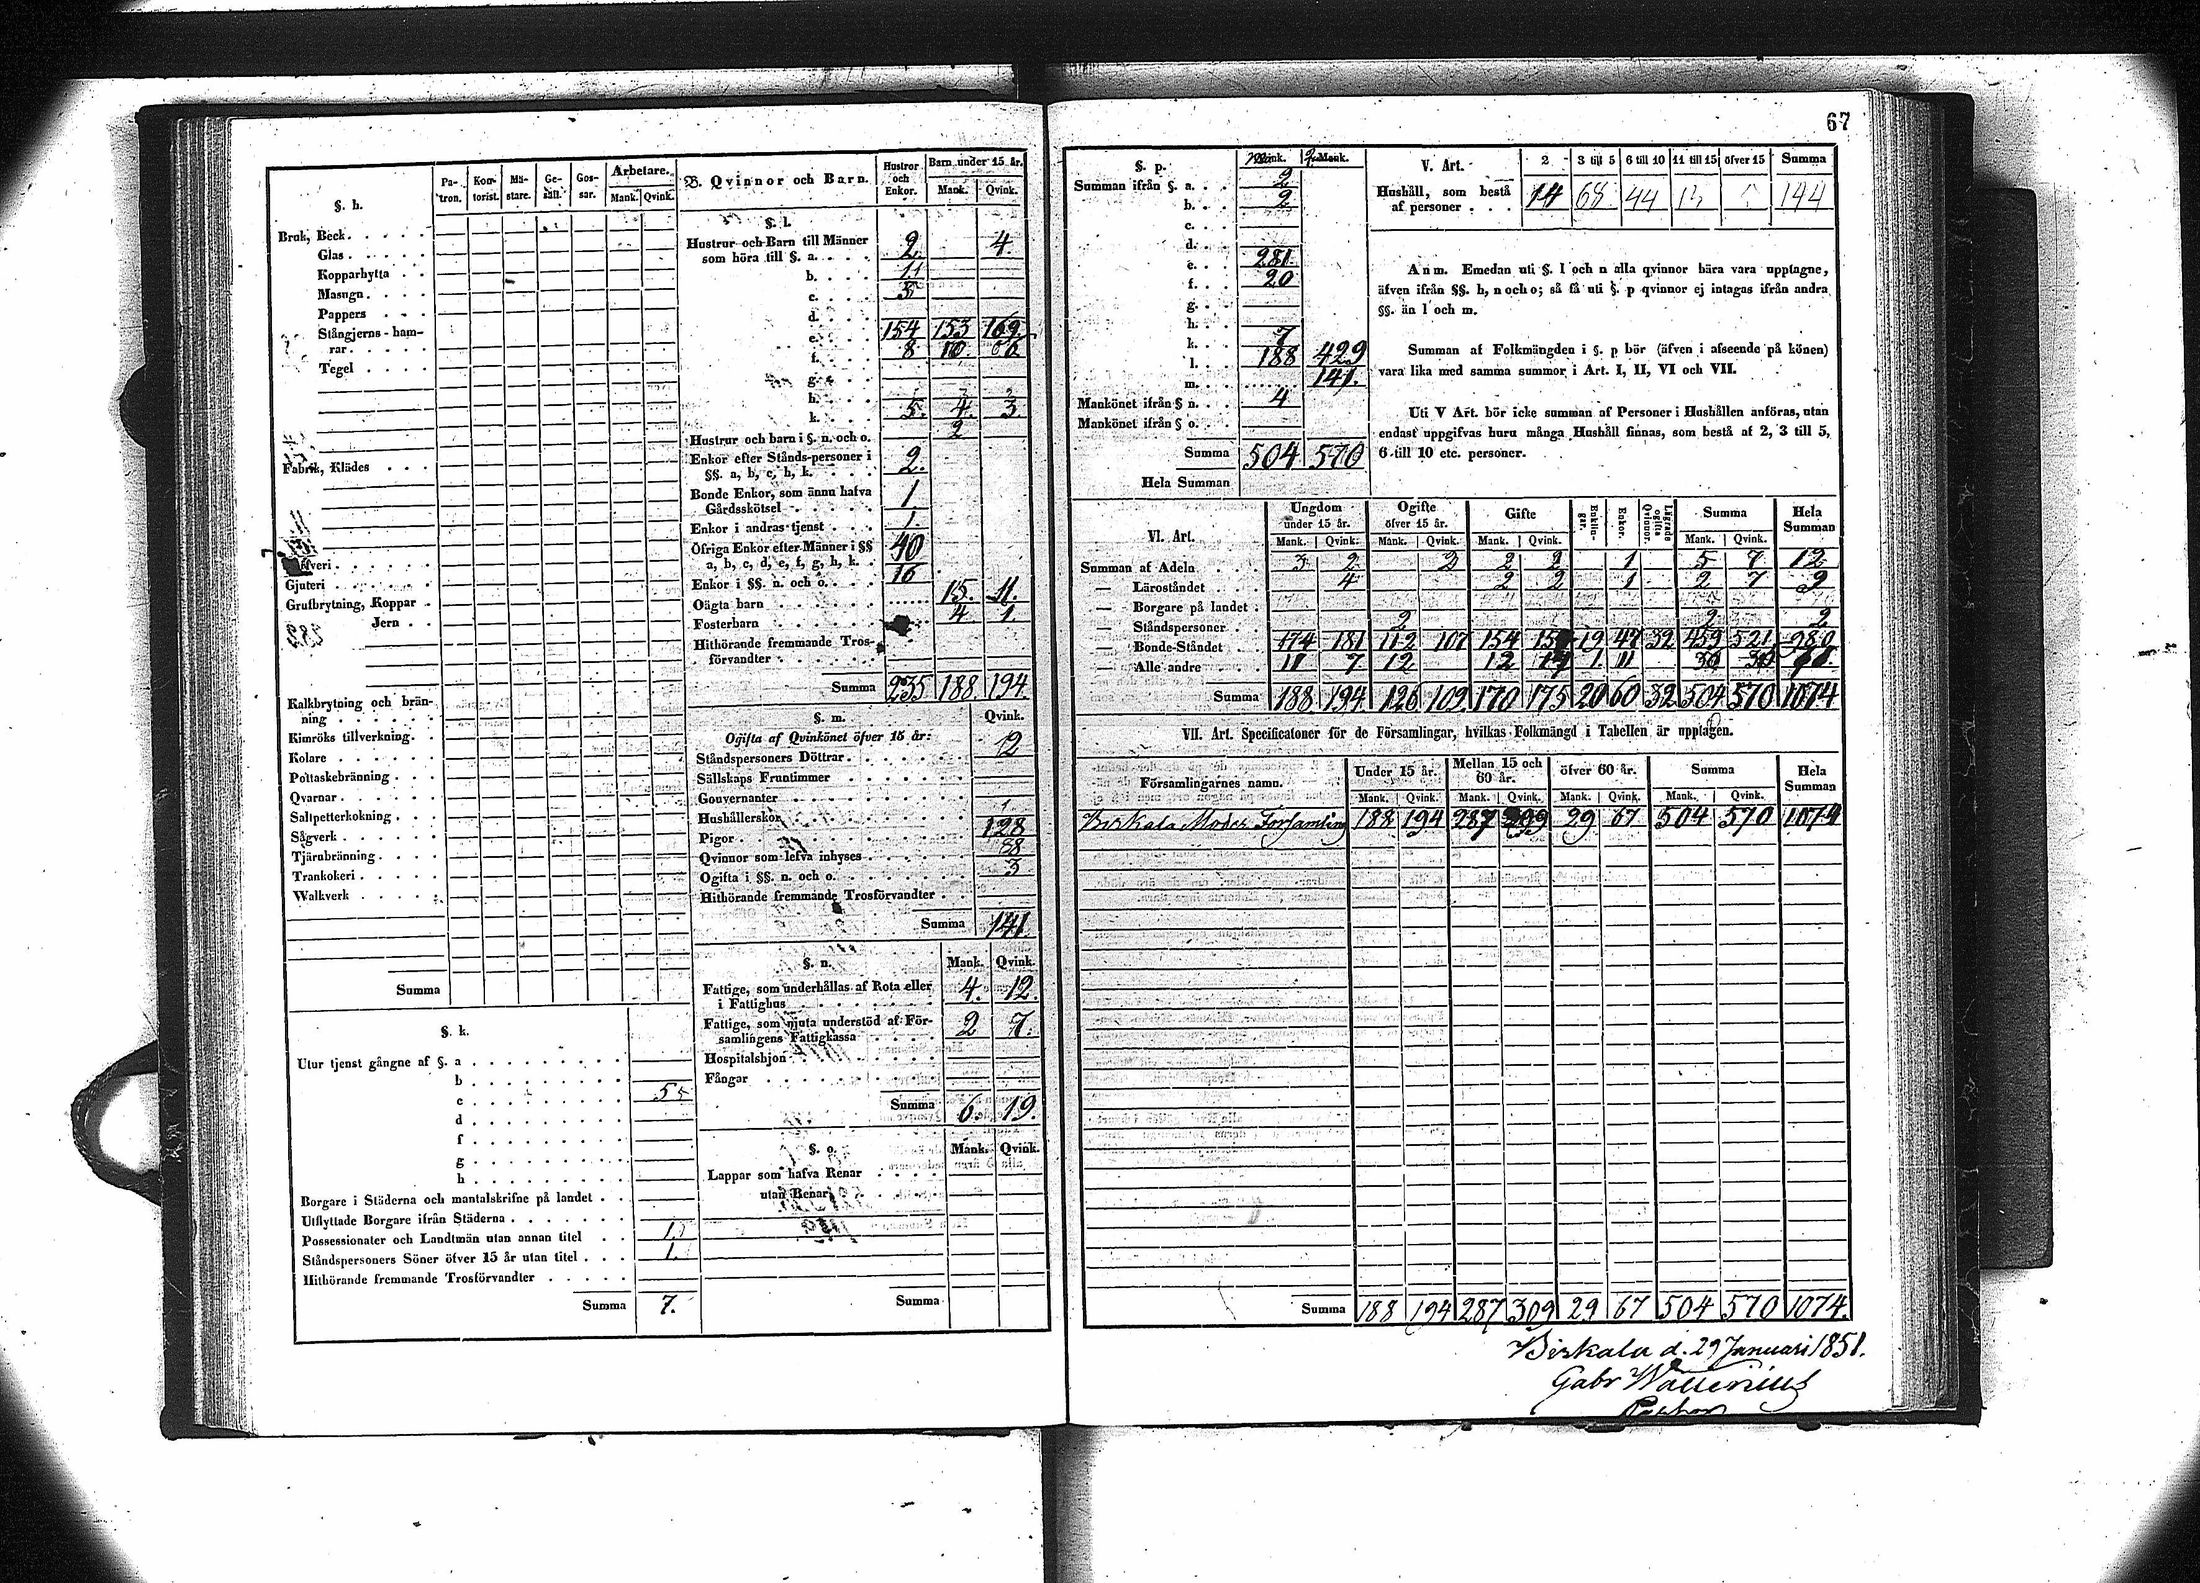 67
§. h.
Pa-tron. Kon-torist. Mä-stare. Ge-säll. Gos-sar. Arbetare. Mank. Qvink.
Bruk, Beck
Glas
Kopparhytta
Masugn
Pappers
Stångjerns-ham-
rar
Tegel
Fabrik, Klädes
Gjuteri
Grufbrytning, Koppar
Jern
Kalkbrytning och brän-
ning
Kimröks tillverkning
Kolare
Pottaskebränning
Qvarnar
Saltpetterkokning
Sågverk
Tjärubränning
Trankokeri
Walkverk
Summa
§. k.
Utur tjenst gångne af §. a
b
c 5
d
f
g
h
Borgare i Städerna och mantalskrifne på landet
Utflyttade Borgare ifrån Städerna
Possessionater och Landtmän utan annan titel 1
Ståndspersoners Söner öfver 15 år utan titel 1.
Hithörande fremmande Trosförvandter
Summa 7.
B. Qvinnor och Barn. Hustror och Enkor. Barn under 15 år. Mank. Qvink.
§. l.
Hustrur och Barn till Männer
som höra till §. a. 2. 4.
b.
c.
d.
e. 154 153 169.
f. 8 10.
g.
h.
k. 5. 4. 3
Hustrur och barn i §. n. och o. 2
Enkor efter Stånds-personer i
§§. a, b, c, h, k. 2.
Bonde Enkor, som ännu hafva
Gårdsskötsel 1
Enkor i andras tjenst 1.
Öfriga Enkor efter Männer i §§
a, b, c, d, e, f, g, h, k. 40
Enkor i §§. n. och o. 16
Oägta barn 15. 11.
Fosterbarn 4 1.
Hithörande fremmande Tros-
förvandter
Summa 235 188. 194.
§. m. Qvink.
Ogifta af Qvinkönet öfver 15 år:
Ståndspersoners Döttrar 2
Sällskaps Fruntimmer
Gouvernanter
Hushållerskor
Pigor 128
Qvinnor som lefva inhyses
Ogifta i §§. n. och o. 3
Hithörande fremmande Trosförvandter
Summa 141.
§. n. Mank. Qvink.
Fattige, som underhållas af Rota eller
i Fattighus 4. 12.
Fattige, som njuta understöd af För-
samlingens Fattigkassa 2 7.
Hospitalshjon
Fångar
Summa 6. 19.
§. o. Mank. Qvink.
Lappar som hafva Renar
utan Renar
Summa
§. p. Mank. Q
Summan ifrån §. a. 2
b. 2
c.
d.
e. 281.
f. 20
g.
h.
k. 7
l. 188 429
m. 141.
Mankönet ifrån § n. 4
Mankönet ifrån § o.
Summa 504 570
Hela Summan
V. Art. 2 3 till 5 6 till 10 11 till 15 öfver 15 Summa
Hushåll, som bestå
af personer 14 68 44 144
Anm. Emedan uti §. l och n alla qvinnor bära vara upptagne,
äfven ifrån §§. h, n och o; så få uti §. p qvinnor ej intagas ifrån andra
§§. än l och m.
Summan af Folkmängden i §. p bör (äfven i afseende på könen)
vara lika med samma summor i Art. I, II, VI och VII.
Uti V Art. bör icke summan af Personer i Hushållen anföras, utan
endast uppgifvas huru många Hushåll finnas, som bestå af 2, 3 till 5,
6 till 10 etc. personer.
VI. Art. Ungdom under 15 år. Ogifte öfver 15 år. Gifte Enklin-gar. Enkor. Lägrade ogifta Qvinnor. Summa Hela Summan
Mank. Qvink. Mank. Qvink. Mank. Qvink. Mank. Qvink.
Summan af Adeln 3 2 2 2 2 1 5 7 12
— Läroståndet 4 2 2 1 2 7 9
— Borgare på landet
— Ståndspersoner 2 2 2
— Bonde-Ståndet 174 181 112 107 154 19 47 32 459 521 980
— Alle andre 11 7 12 12 1. 11
Summa 188 194. 126 109. 170 175 20 60 32 504 570 1074
VII. Art. Specificatoner för de Församlingar, hvilkas Folkmängd i Tabellen är upptagen.
Församlingarnes namn. Under 15 år. Mellan 15 och 60 år. öfver 60 år. Summa Hela Summan
Mank. Qvink. Mank. Qvink. Mank. Qvink. Mank. Qvink.
Birkala Moder Församling 188 194 287 29 67 504 570 1074
Summa 188 194 287 309 29 67 504 570 1074.
Birkala d. 29 Januari 1851.
Gabr Wallenius
Pastor